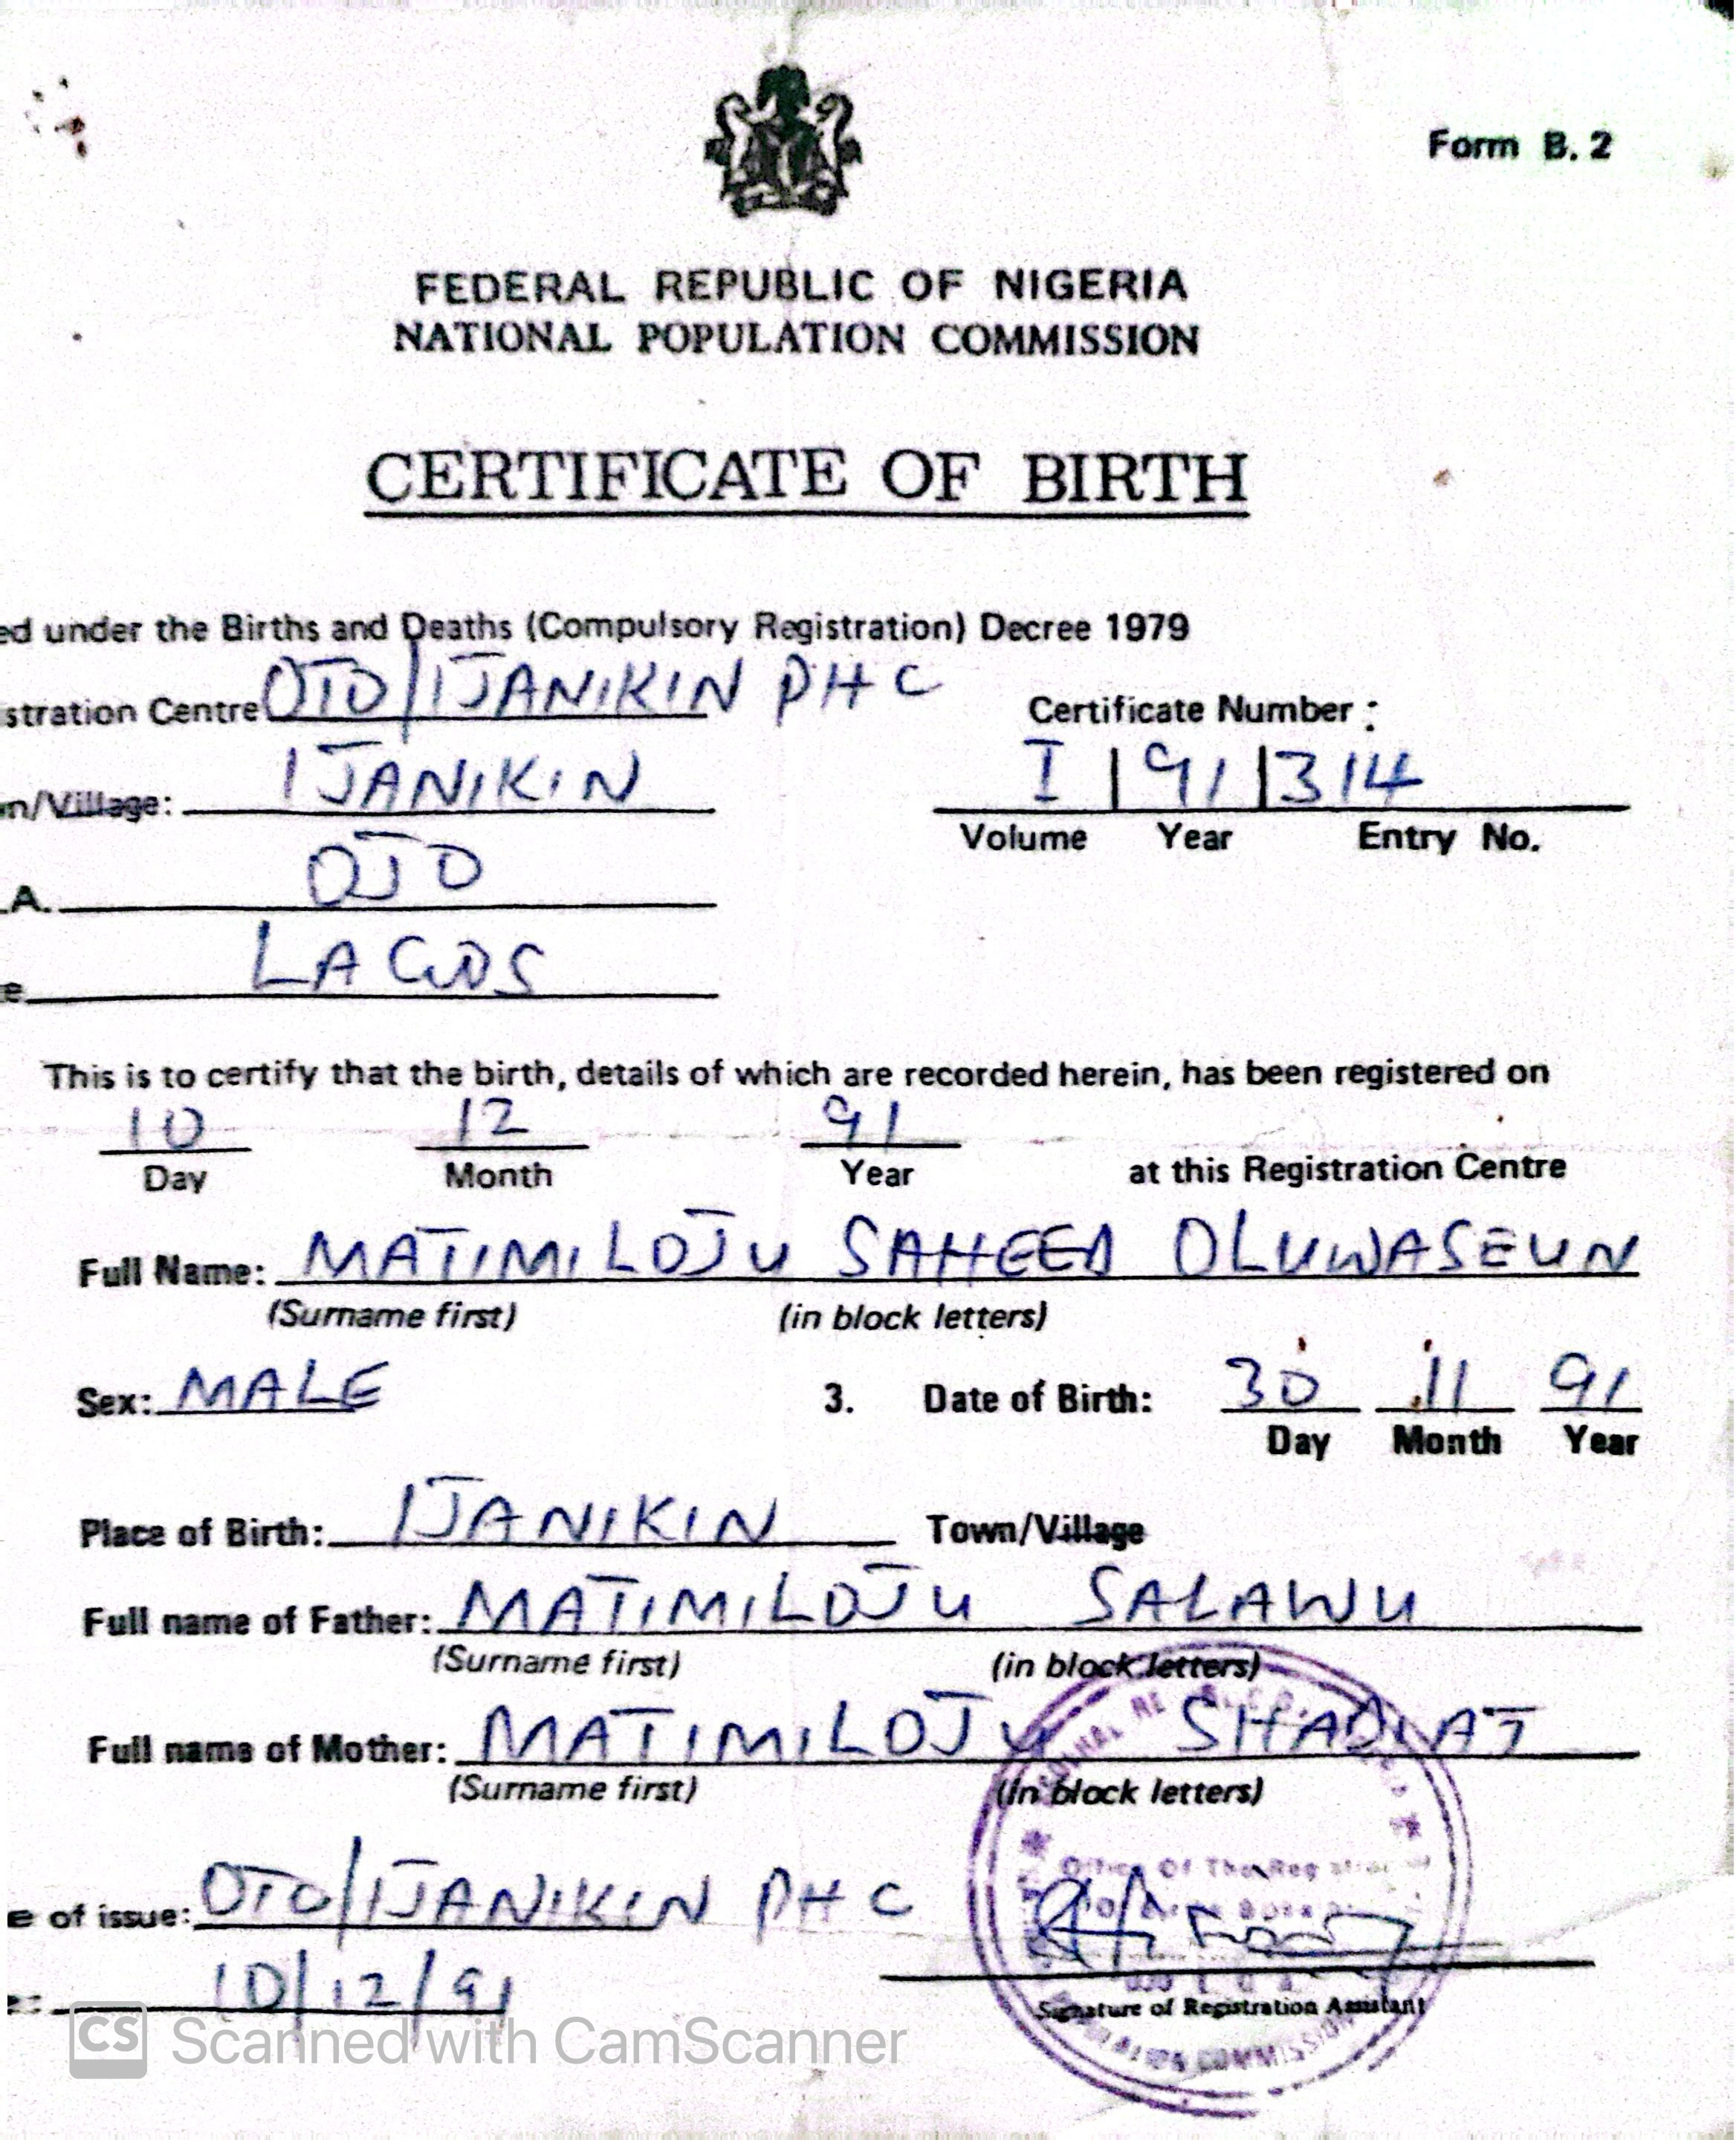 Form B. 2
FEDERAL REPUBLIC OF NIGERIA
NATIONAL POPULATION COMMISSION
CERTIFICATE OF BIRTH
ed under the Births and Deaths (Compulsory Registration) Decree 1979
stration Centre OTO/IJANIKIN PHC
Certificate Number :
n/Village: IJANIKIN
I | 91 | 314
Volume Year Entry No.
.A. OJO
e LAGOS
This is to certify that the birth, details of which are recorded herein, has been registered on
10 12 91
Day Month Year at this Registration Centre
Full Name: MATIMILOJU SAHEED OLUWASEUN
(Surname first) (in block letters)
Sex: MALE 3. Date of Birth: 30 11 91
Day Month Year
Place of Birth: IJANIKIN Town/Village
Full name of Father: MATIMILOJU SALAWU
(Surname first) (in block letters)
Full name of Mother: MATIMILOJU SHADIAT
(Surname first) (in block letters)
Office Of The
e of issue: OTO/IJANIKIN PHC
10/12/91
Signature of Registration Assistant
COMMISSION
CS Scanned with CamScanner